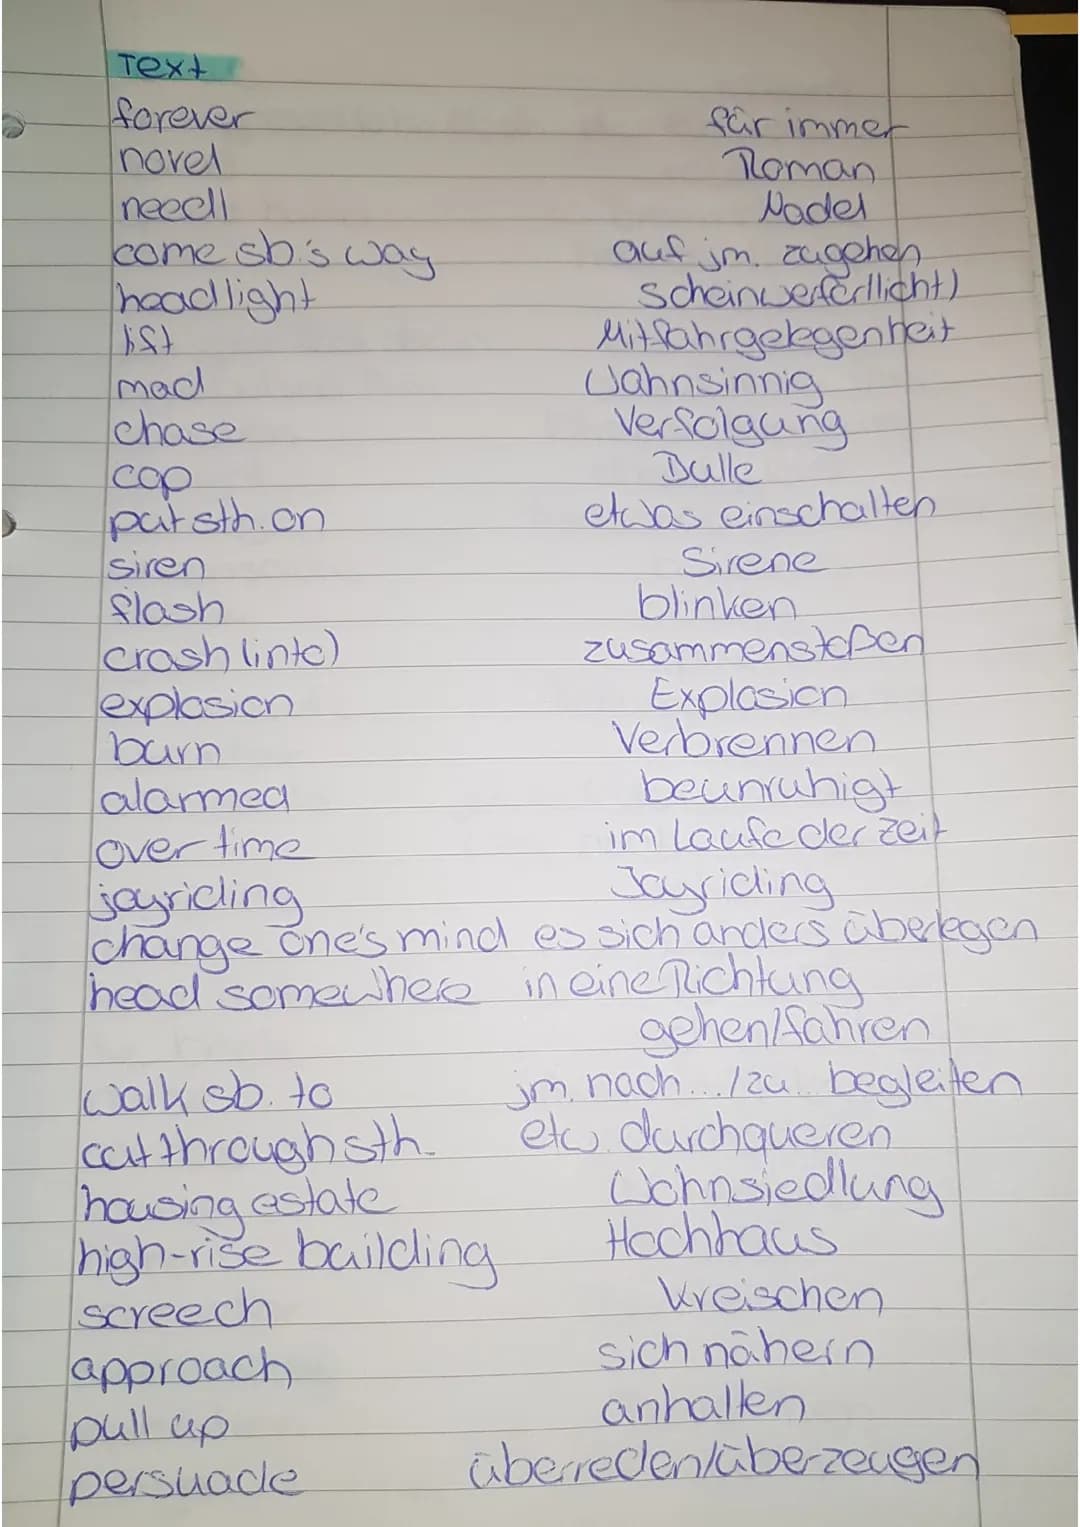 Text
forever für immer
novel Roman
needl Nadel
come sb's way auf jm. zugehen
headlight Scheinwerfer(licht)
lift Mitfahrgelegenheit
mad Wahnsinnig
chase Verfolgung
cop Bulle
put sth. on etwas einschalten
siren Sirene
flash blinken
crash (into) zusammenstoßen
explosion Explosion
burn Verbrennen
alarmed beunruhigt
over time im Laufe der Zeit
joyriding Joyriding
change one's mind es sich anders überlegen
head somewhere in eine Richtung
gehen/fahren
walk sb. to jm. nach.../zu... begleiten
cut through sth. etw. durchqueren
housing estate Wohnsiedlung
high-rise building Hochhaus
screech kreischen
approach sich nähern
pull up anhalten
persuade überreden/überzeugen